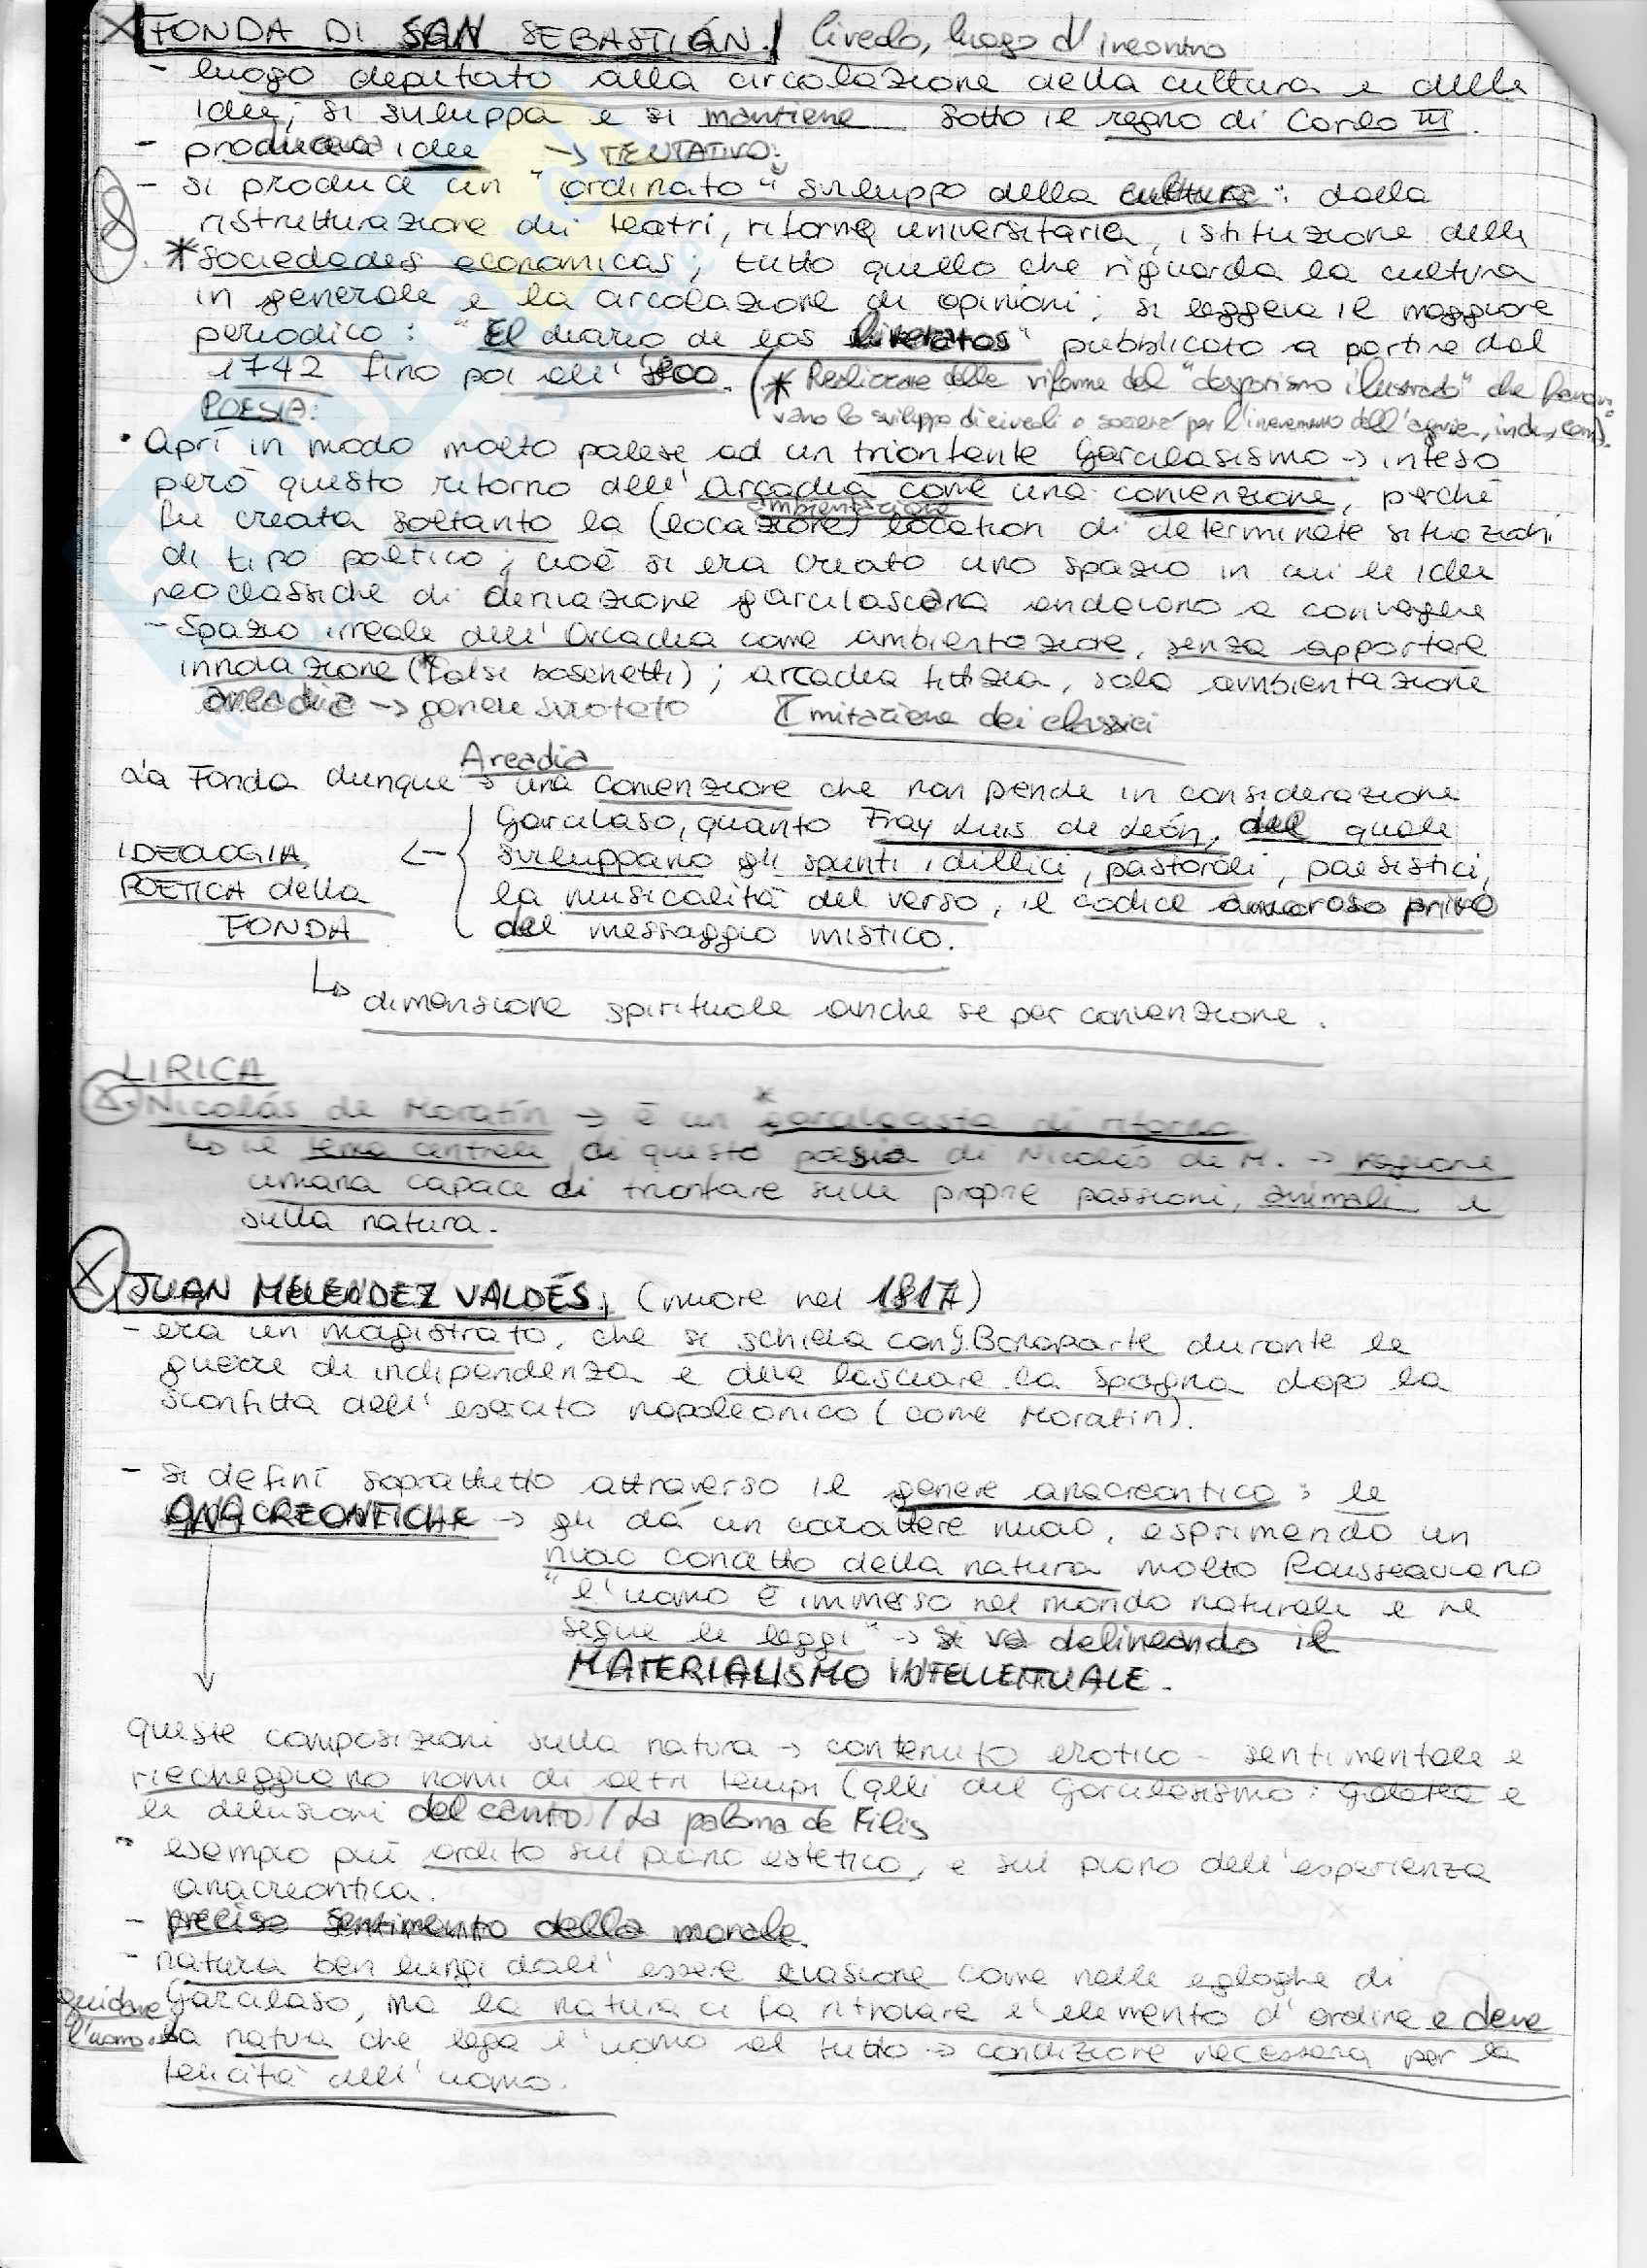 FONDA DI SAN SEBASTIÁN. Circolo, luogo d'incontro
- luogo deputato alla circolazione della cultura e delle
idee, si sviluppa e si mantiene sotto il regno di Carlo III.
- produceva idee → TENTATIVO:
- si produce un "ordinato" sviluppo della cultura: dalla
ristrutturazione dei teatri, riforma universitaria, istituzione delle
* sociedades economicas; tutto quello che riguarda la cultura
in generale e la circolazione di opinioni; si leggeva il maggiore
periodico: "El diario de los literatos" pubblicato a partire dal
1742 fino poi all' '800. (* Realizzazione delle riforme del "despotismo ilustrado" che
vano lo sviluppo di circoli o società per l'incremento dell'
POESIA:
• Aprì in modo molto palese ad un trionfante Garcilasismo → inteso
però questo ritorno dell'Arcadia come una convenzione, perché
ambientazione
fu creata soltanto la (locazione) location di determinate situazioni
di tipo poetico; cioè si era creato uno spazio in cui le idee
neoclassiche di derivazione garcilascana andavano a convergere
- Spazio irreale dell'Arcadia come ambientazione, senza apportare
innovazione (falsi boschetti); arcadia fittizia, solo ambientazione
arcadia → genere svuotato Imitazione dei classici
Arcadia
La Fonda dunque → una convenzione che non prende in considerazione
Garcilaso, quanto Fray Luis de León, del quale
sviluppano gli spunti idillici, pastorali, paesistici,
la musicalità del verso, il codice amoroso privo
del messaggio mistico.
IDEOLOGIA
POETICA della
FONDA
↳ dimensione spirituale anche se per convenzione.
LIRICA
Nicolás de Moratín → è un * garcilasista di ritorno
↳ il tema centrale di questa poesia di Nicolás de M. → ragione
umana capace di trionfare sulle proprie passioni, animali e
sulla natura.
JUAN MELENDEZ VALDÉS, (muore nel 1817)
- era un magistrato, che si schiera con G. Bonaparte durante le
guerre di indipendenza e deve lasciare la Spagna dopo la
sconfitta dell'esercito napoleonico (come Moratín).
- si definì soprattutto attraverso il genere anacreontico: le
ANACREONTICHE → gli dà un carattere nuovo, esprimendo un
nuovo concetto della natura molto Rousseauiano
"l'uomo è immerso nel mondo naturale e ne
segue le leggi" → si va delineando il
MATERIALISMO INTELLETTUALE.
queste composizioni sulla natura → contenuto erotico - sentimentale e
riecheggiano nomi di altri tempi (quelli del Garcilasismo: Galatea e
le delusioni del canto / La paloma de Filis
esempio più ardito sul piano estetico, e sul piano dell'esperienza
anacreontica.
- preciso sentimento della morale.
- natura ben lungi dall'essere evasione come nelle egloghe di
Garcilaso, ma la natura ci fa ritrovare l'elemento d'ordine e deve
guidare
l'uomo. La natura che lega l'uomo al tutto → condizione necessaria per la
felicità dell'uomo.